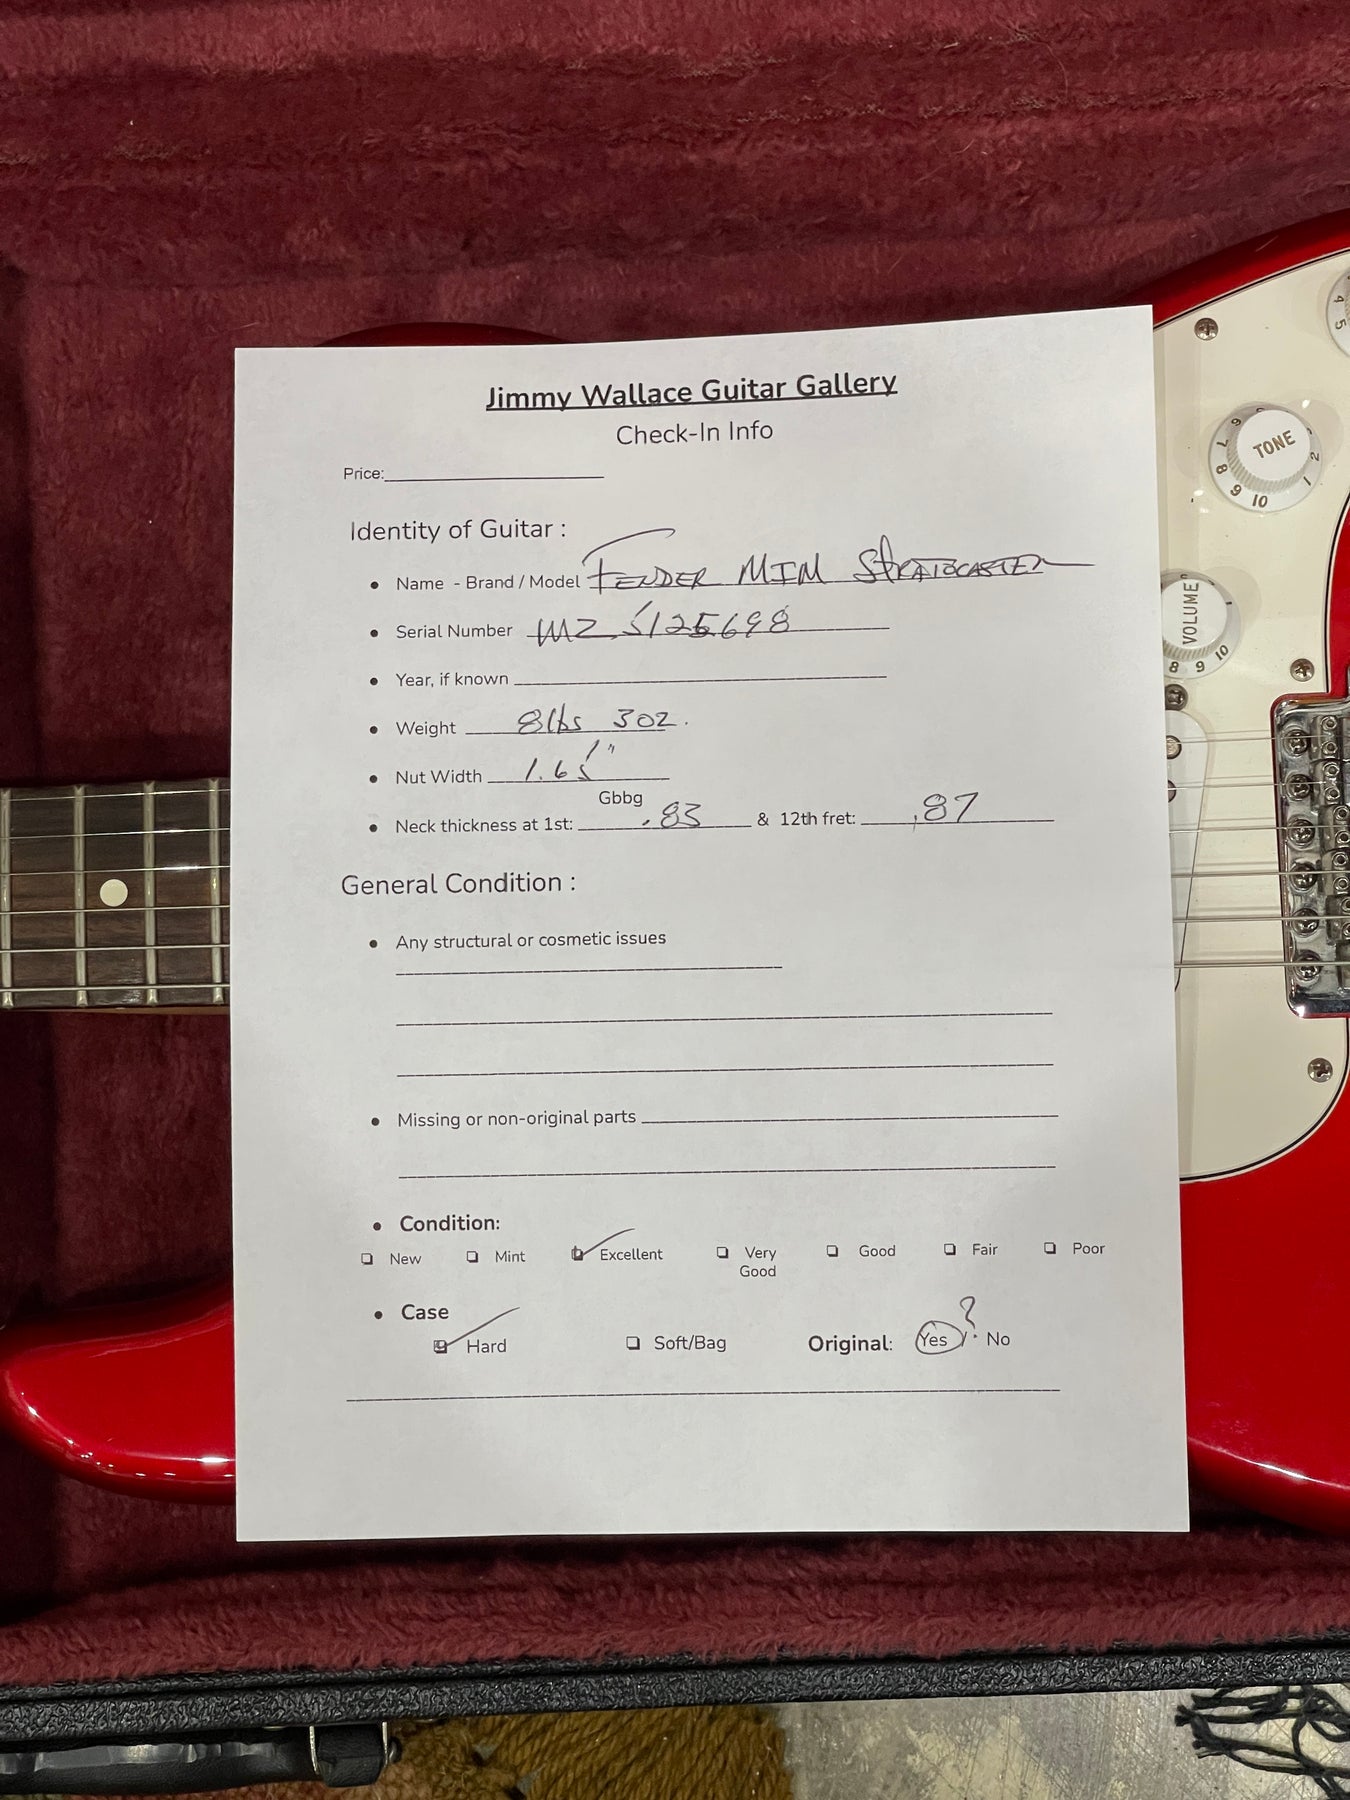 Jimmy Wallace Guitar Gallery
Check-In Info
Price:
Identity of Guitar :
Name - Brand / Model FENDER MIM STRATOCASTER
Serial Number MZ5125698
Year, if known
Weight 8lbs 3oz.
Nut Width 1.65"
Gbbg
Neck thickness at 1st: .83 & 12th fret: .87
General Condition :
Any structural or cosmetic issues
Missing or non-original parts
Condition:
New Mint Excellent Very Good Good Fair Poor
Case
Hard Soft/Bag Original: Yes / No ?
TONE
1 2 6 7 8 9 10
VOLUME
1 8 9 10
4 5